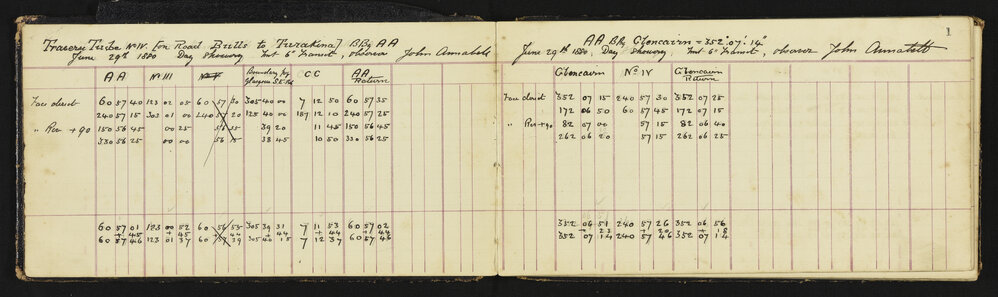 Traverse Tribe No IV. [on Road Bulls to Turakina] BRg AA
June 29th 1880 Day showery Inst 6" Transit, observer John Annabell
AA No III No V Boundary peg Glasgows S.E. Cor CC AA Return
Face direct 60 57 40 123 02 05 60 57 30 305 40 00 7 12 50 60 57 35
240 57 15 303 01 00 240 57 20 125 40 00 187 12 10 240 57 25
" Per +90 150 56 45 00 25 56 25 39 20 11 45 150 56 45
330 56 25 00 00 56 15 38 45 10 50 330 56 25
60 57 01 123 00 52 60 56 53 305 39 31 7 11 53 60 57 02
+ 45 + 45 + 44 + 44 + 44
60 57 46 123 01 37 60 57 39 305 40 15 7 12 37 60 57 46
1
AA BRg Glencairn = 352° 07' 14"
June 29th 1880, Day showery Inst 6" Transit, observer John Annabell
Glencairn No IV Glencairn Return
Face direct 352 07 15 240 57 30 352 07 25
172 06 50 60 57 45 172 07 15
" Per +90 82 07 00 57 15 82 06 40
262 06 20 57 15 262 06 25
352 06 51 240 57 26 352 06 56
+ 23 + 20 + 18
352 07 14 240 57 46 352 07 14